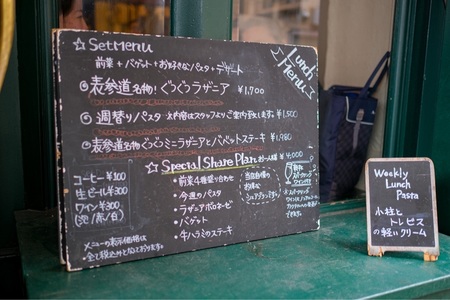 ☆ SetMenu
前菜 + バゲット + お好きなパスタ + デザート
Lunch
Menu
表参道名物! ぐつぐつラザニア ¥1,700
週替りパスタ ※内容はスタッフよりご案内致します。 ¥1,500
表参道名物ぐつぐつラザニアとバベットステーキ ¥1,980
☆ Special Share Plan お一人様 ¥4,000
コーヒー ¥100
生ビール ¥300
ワイン ¥300
(泡/赤/白)
メニューの表示価格は
全て税込みとなっております。
・前菜4種盛り合わせ
・今週のパスタ
・ラザニアボロネーゼ
・バゲット
・牛ハラミのステーキ
Weekly
Lunch
Pasta
小柱と
トレビスの
軽いクリーム